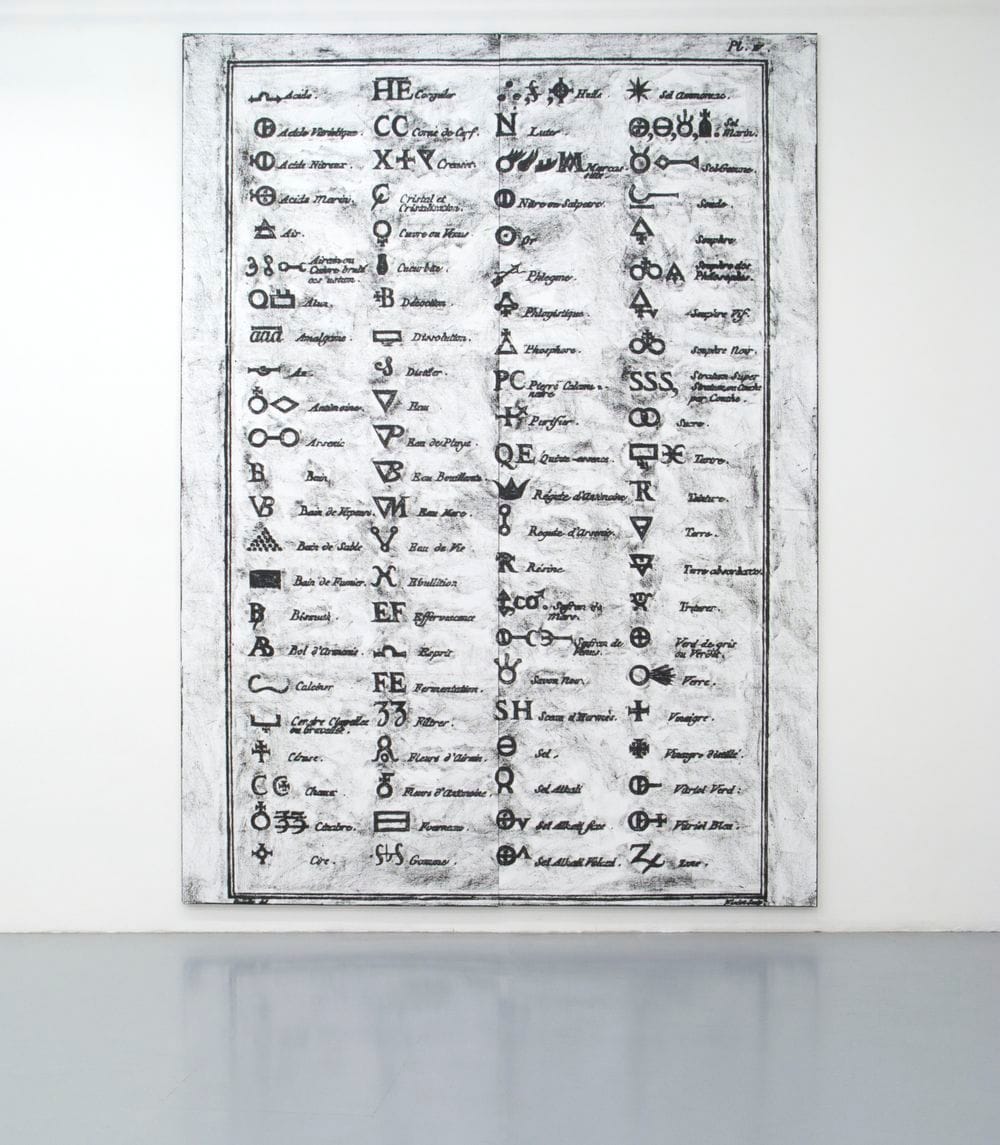 Pl.
Acide.
Acide Vitriolique.
Acide Nitreux.
Acide Marin.
Air.
Airain ou
Cuivre brulé
oes ustum.
Alun.
aaa Amalgame.
Antimoine.
Arsenic
B Bain.
VB Bain de Vapeurs.
Bain de Sable
Bain de Fumier.
B Bismuth.
AB Bol d'Armenie.
Calciner
Cendre Clavellee
ou Gravellée.
Céruse.
CC Chaux.
33 Cinabre.
Cire.
HE Coaguler
CC Corne de Cerf.
X Creuset.
Cristal et
Cristallisation.
Cuivre ou Vénus
Cucurbite.
B Décoction.
Dissolution.
Distiler.
Eau
Eau de Pluye.
Eau Bouillante.
M Eau Mere.
Eau de Vie
Ebullition
EF Effervescence
Esprit
FE Fermentation.
33 Filtrer.
Fleurs d'Airain.
Fleurs d'Antimoine.
Fourneau.
Gomme.
Huile.
N Luter.
M Marcas-
Nitre ou Salpetre.
Or
Phlegme.
Phlogistique.
Phosphore.
PC Pierre Calami-
naire
Purifier.
QE Quinte-essence.
Régule d'Antimoine
Regule d'Arsenic.
R Résine.
Safran de
Mars.
Safran de
Venus.
Savon Noir.
SH Sceau d'Hermès.
Sel.
Sel Alkali
Sel Alkali fixe.
Sel Alkali Volatil.
Sel Ammoniac.
Sel
Marin.
Sel Gemme.
Soude.
Souphre
Souphre des
Philosophes.
Souphre Vif.
Souphre Noir.
SSS, Stratum Super
Stratum ou Couche
par Couche.
Sucre.
Tartre.
R Teinture.
Terre.
Terre absorbante.
Triturer.
Verd de gris
ou Verdet.
Verre.
Vinaigre.
Vinaigre distillé.
Vitriol Verd.
Vitriol Bleu.
Z Zinc.